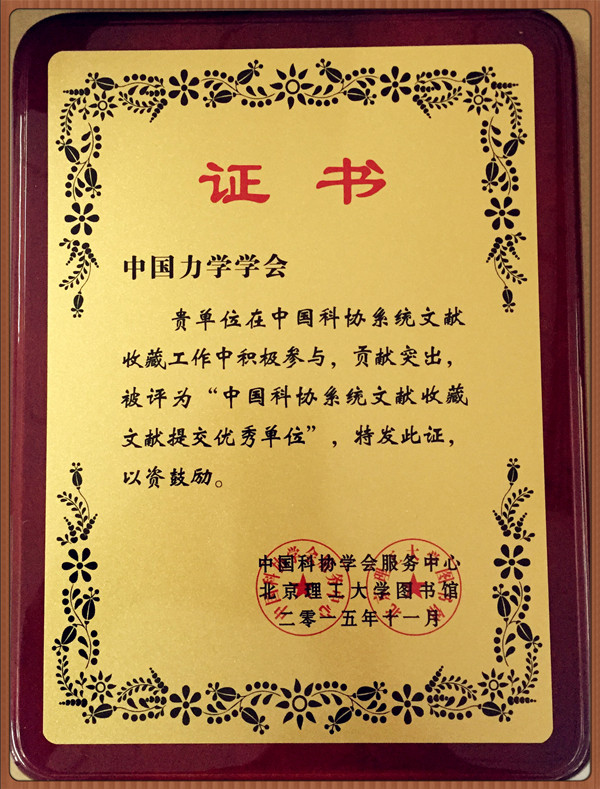 证书
中国力学学会
贵单位在中国科协系统文献
收藏工作中积极参与，贡献突出，
被评为“中国科协系统文献收藏
文献提交优秀单位”，特发此证，
以资鼓励。
中国科协学会服务中心
北京理工大学图书馆
二零一五年十一月
中国科协学会服务中心
北京理工大学图书馆